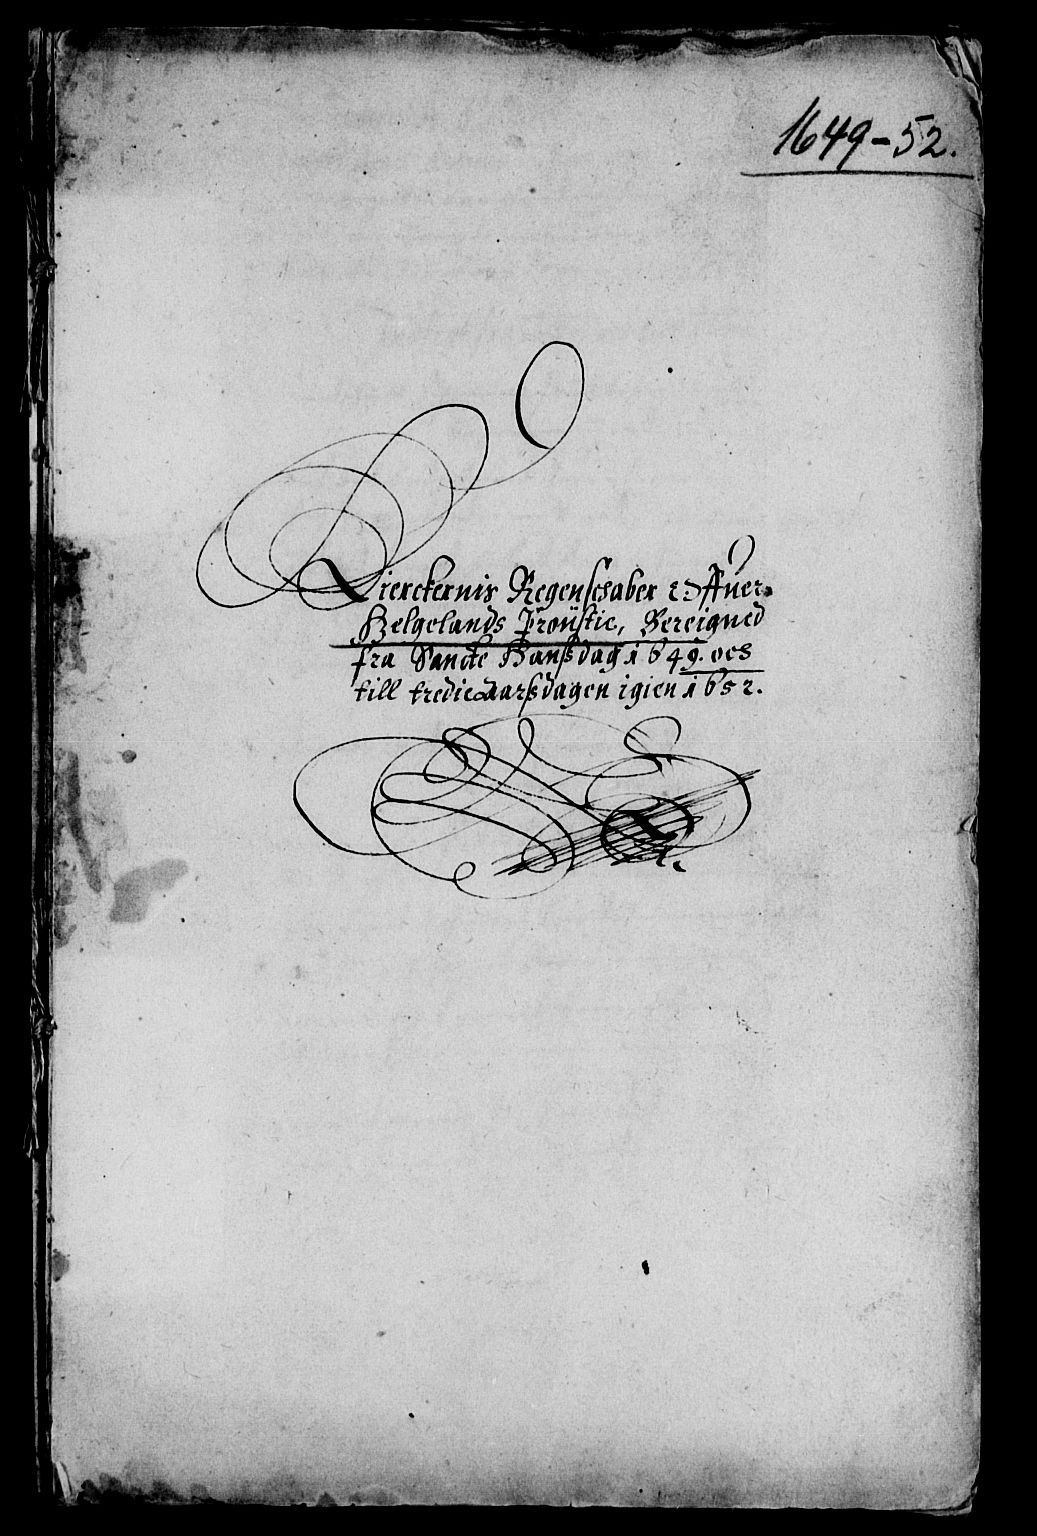 1649-52.
Kierckernis Regenschaber Offuer
Helgelands Proustie, Bereigned
fra Sancte Hanßdag 1649. och
till tredie Aarßdagen igien 1652.